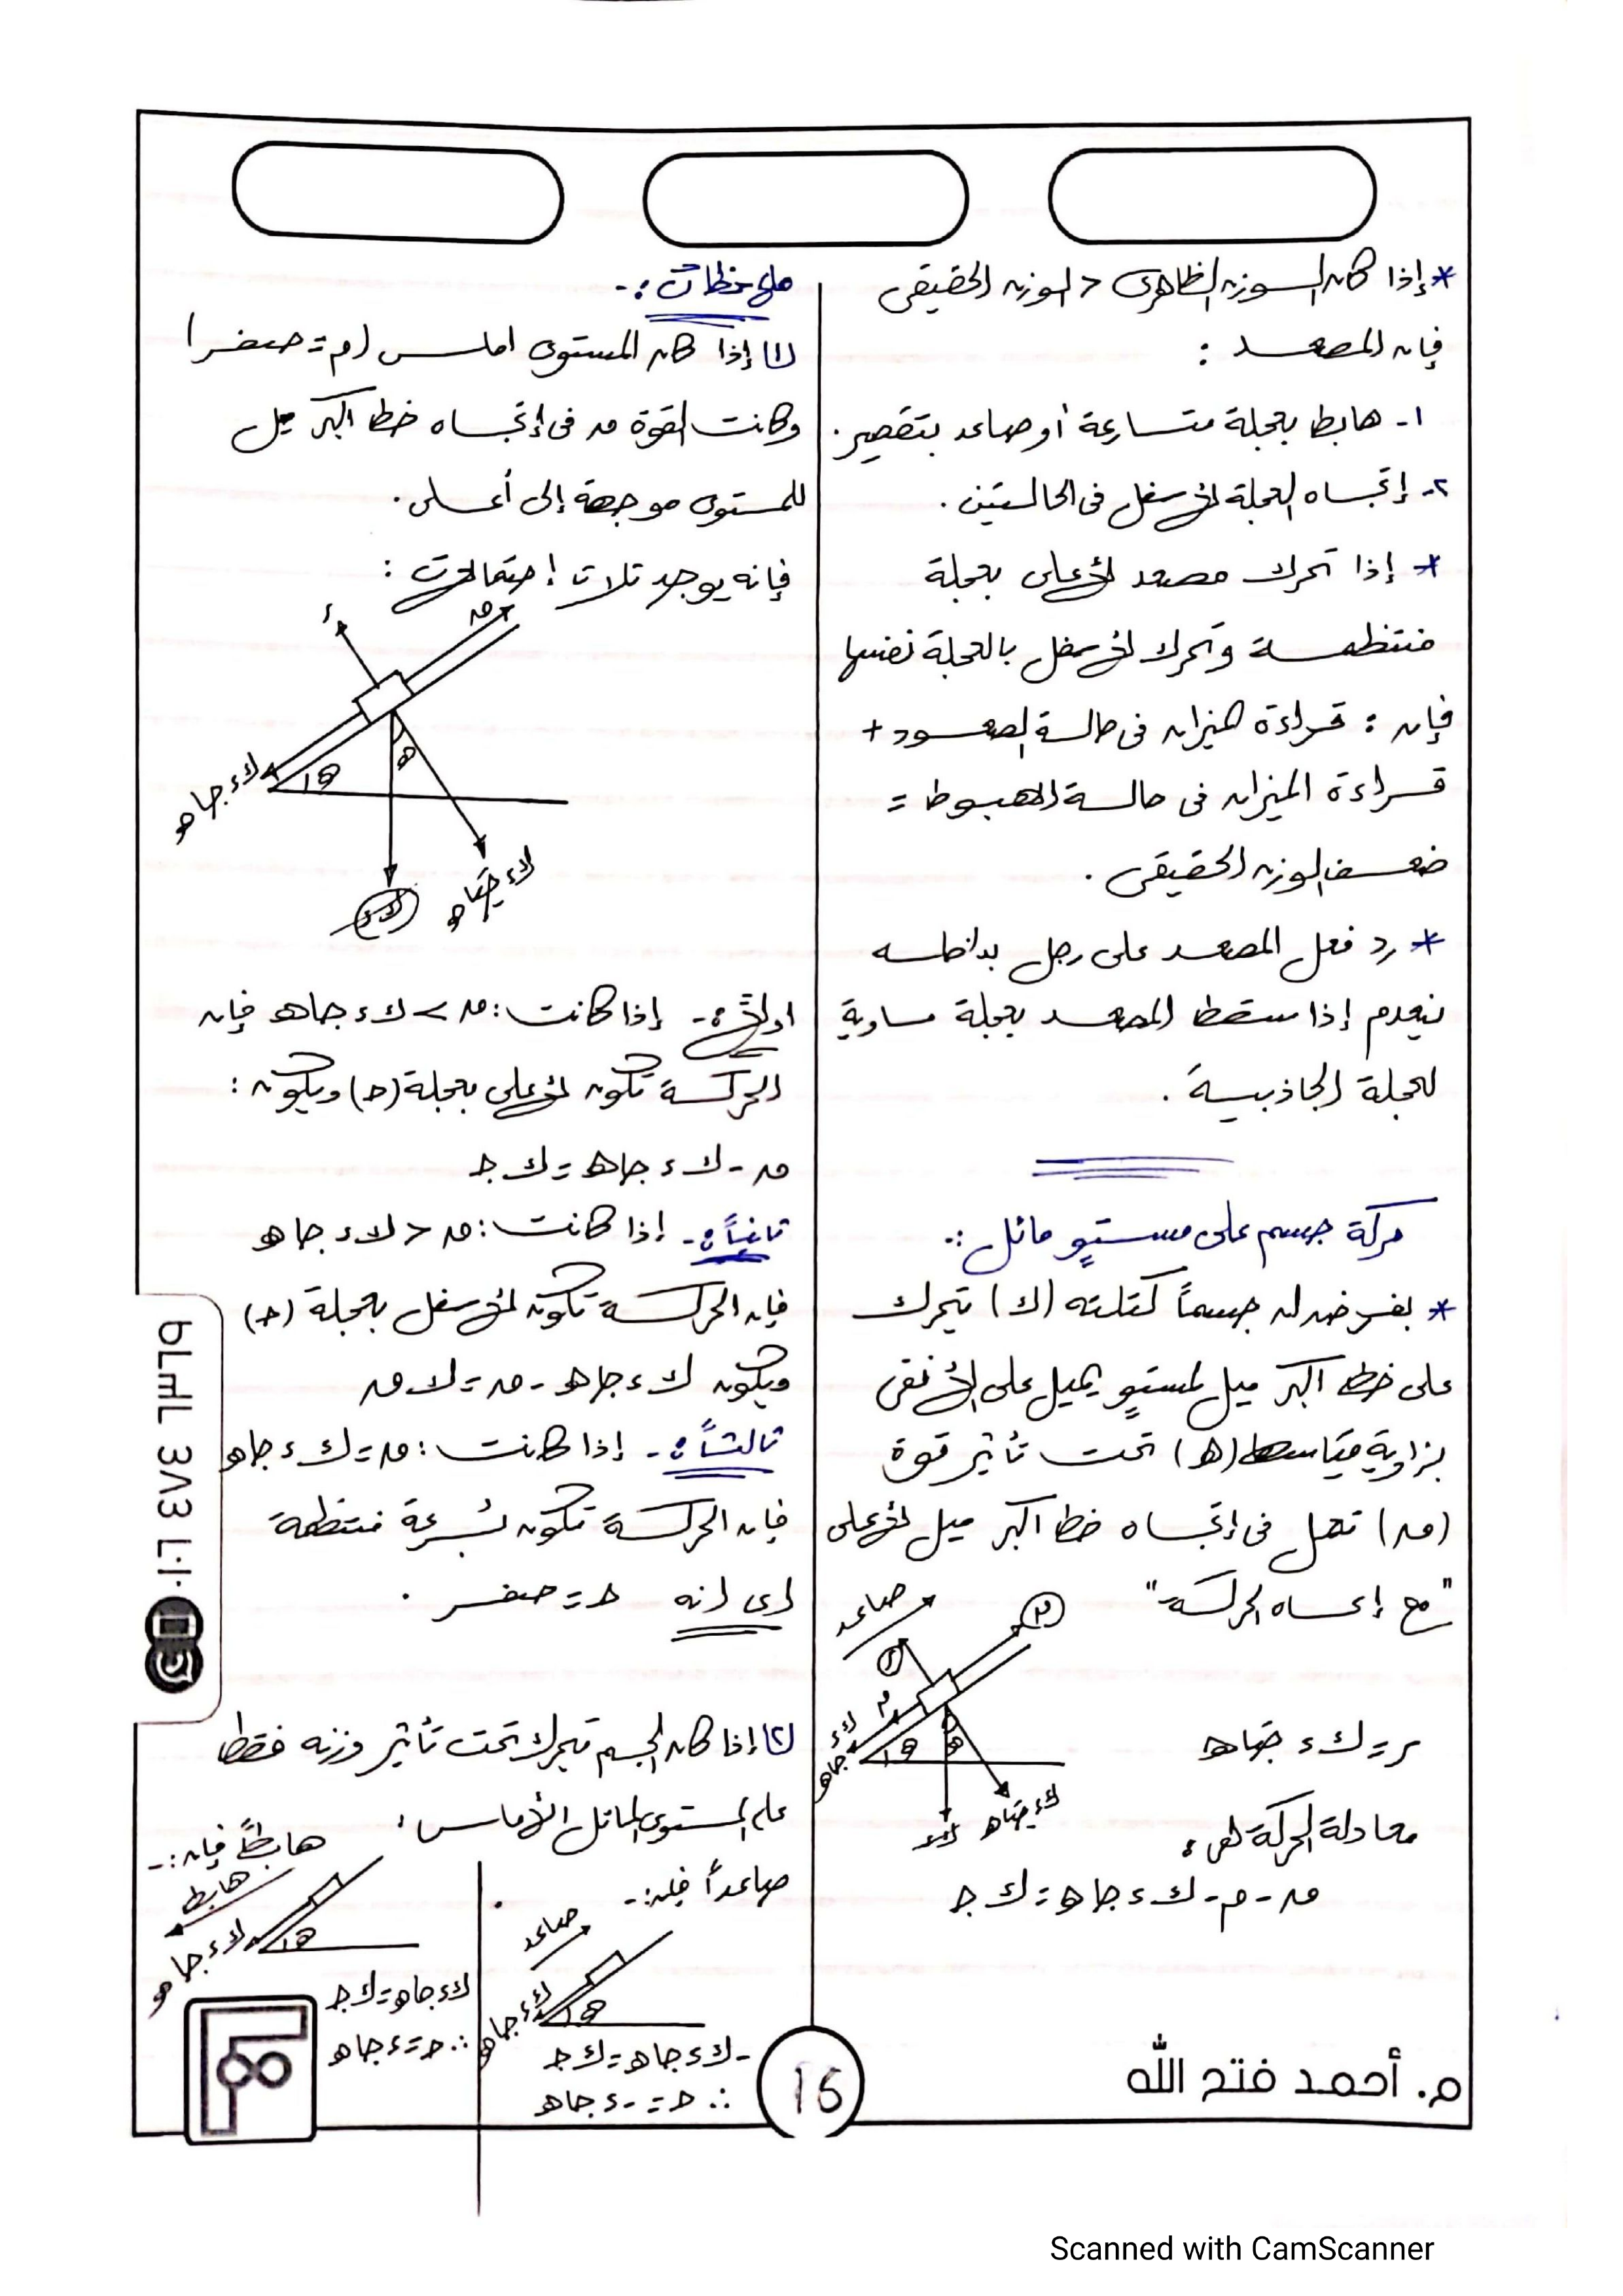 * إذا كان الوزن الظاهرى < الوزن الحقيقى
فإن المصعد :
١- هابط بعجلة متسارعة أو صاعد بتقصير .
٢- إتجاه العجلة لأسفل فى الحالتين .
* إذا تحرك مصعد لأعلى بعجلة
منتظمة وتحرك لأسفل بالعجلة نفسها
فإن : قراءة الميزان فى حالة الصعود +
قراءة الميزان فى حالة الهبوط =
ضعف الوزن الحقيقى .
* رد فعل المصعد على رجل بداخله
ينعدم إذا سقط المصعد بعجلة مساوية
لعجلة الجاذبية .
حركة جسم على مستوٍ مائل :-
* بفرض أن جسماً كتلته (ك) يتحرك
على خط أكبر ميل لمستوٍ يميل على الأفقى
بزاوية قياسها (هـ) تحت تأثير قوة
(ق) تعمل فى إتجاه خط أكبر ميل لأعلى
"مع إتجاه الحركة"
صاعد
ق
ر
م
ك ء جا هـ
هـ
هـ
ك ء جتا هـ
ك ء
ر = ك ء جتا هـ
معادلة الحركة هى :
ق - م - ك ء جا هـ = ك جـ
ملاحظات :-
(١) إذا كان المستوى املس (م = صفر)
وكانت القوة ق فى إتجاه خط أكبر ميل
للمستوى موجهة إلى أعلى .
فإنه يوجد ثلاث إحتمالات :
ر
ق
ك ء جا هـ
هـ
هـ
ك ء جتا هـ
ك ء
اولاً :- إذا كانت : ق > ك ء جا هـ فإن
الحركة تكون لأعلى بعجلة (جـ) ويكون :
ق - ك ء جا هـ = ك جـ
ثانياً :- إذا كانت : ق < ك ء جا هـ
فإن الحركة تكون لأسفل بعجلة (جـ)
ويكون ك ء جا هـ - ق = ك ق
ثالثاً :- إذا كانت : ق = ك ء جا هـ
فإن الحركة تكون بسرعة منتظمة
اى انه جـ = صفر .
(٢) إذا كان الجسم يتحرك تحت تأثير وزنه فقط
على المستوى المائل الأملس :
صاعداً فإن :-
صاعد
ك ء جا هـ
هـ
- ك ء جا هـ = ك جـ
∴ جـ = - ء جا هـ
هابطاً فإن :-
هابط
ك ء جا هـ
هـ
ك ء جا هـ = ك جـ
∴ جـ = ء جا هـ
م. أحمد فتح الله
16
Scanned with CamScanner